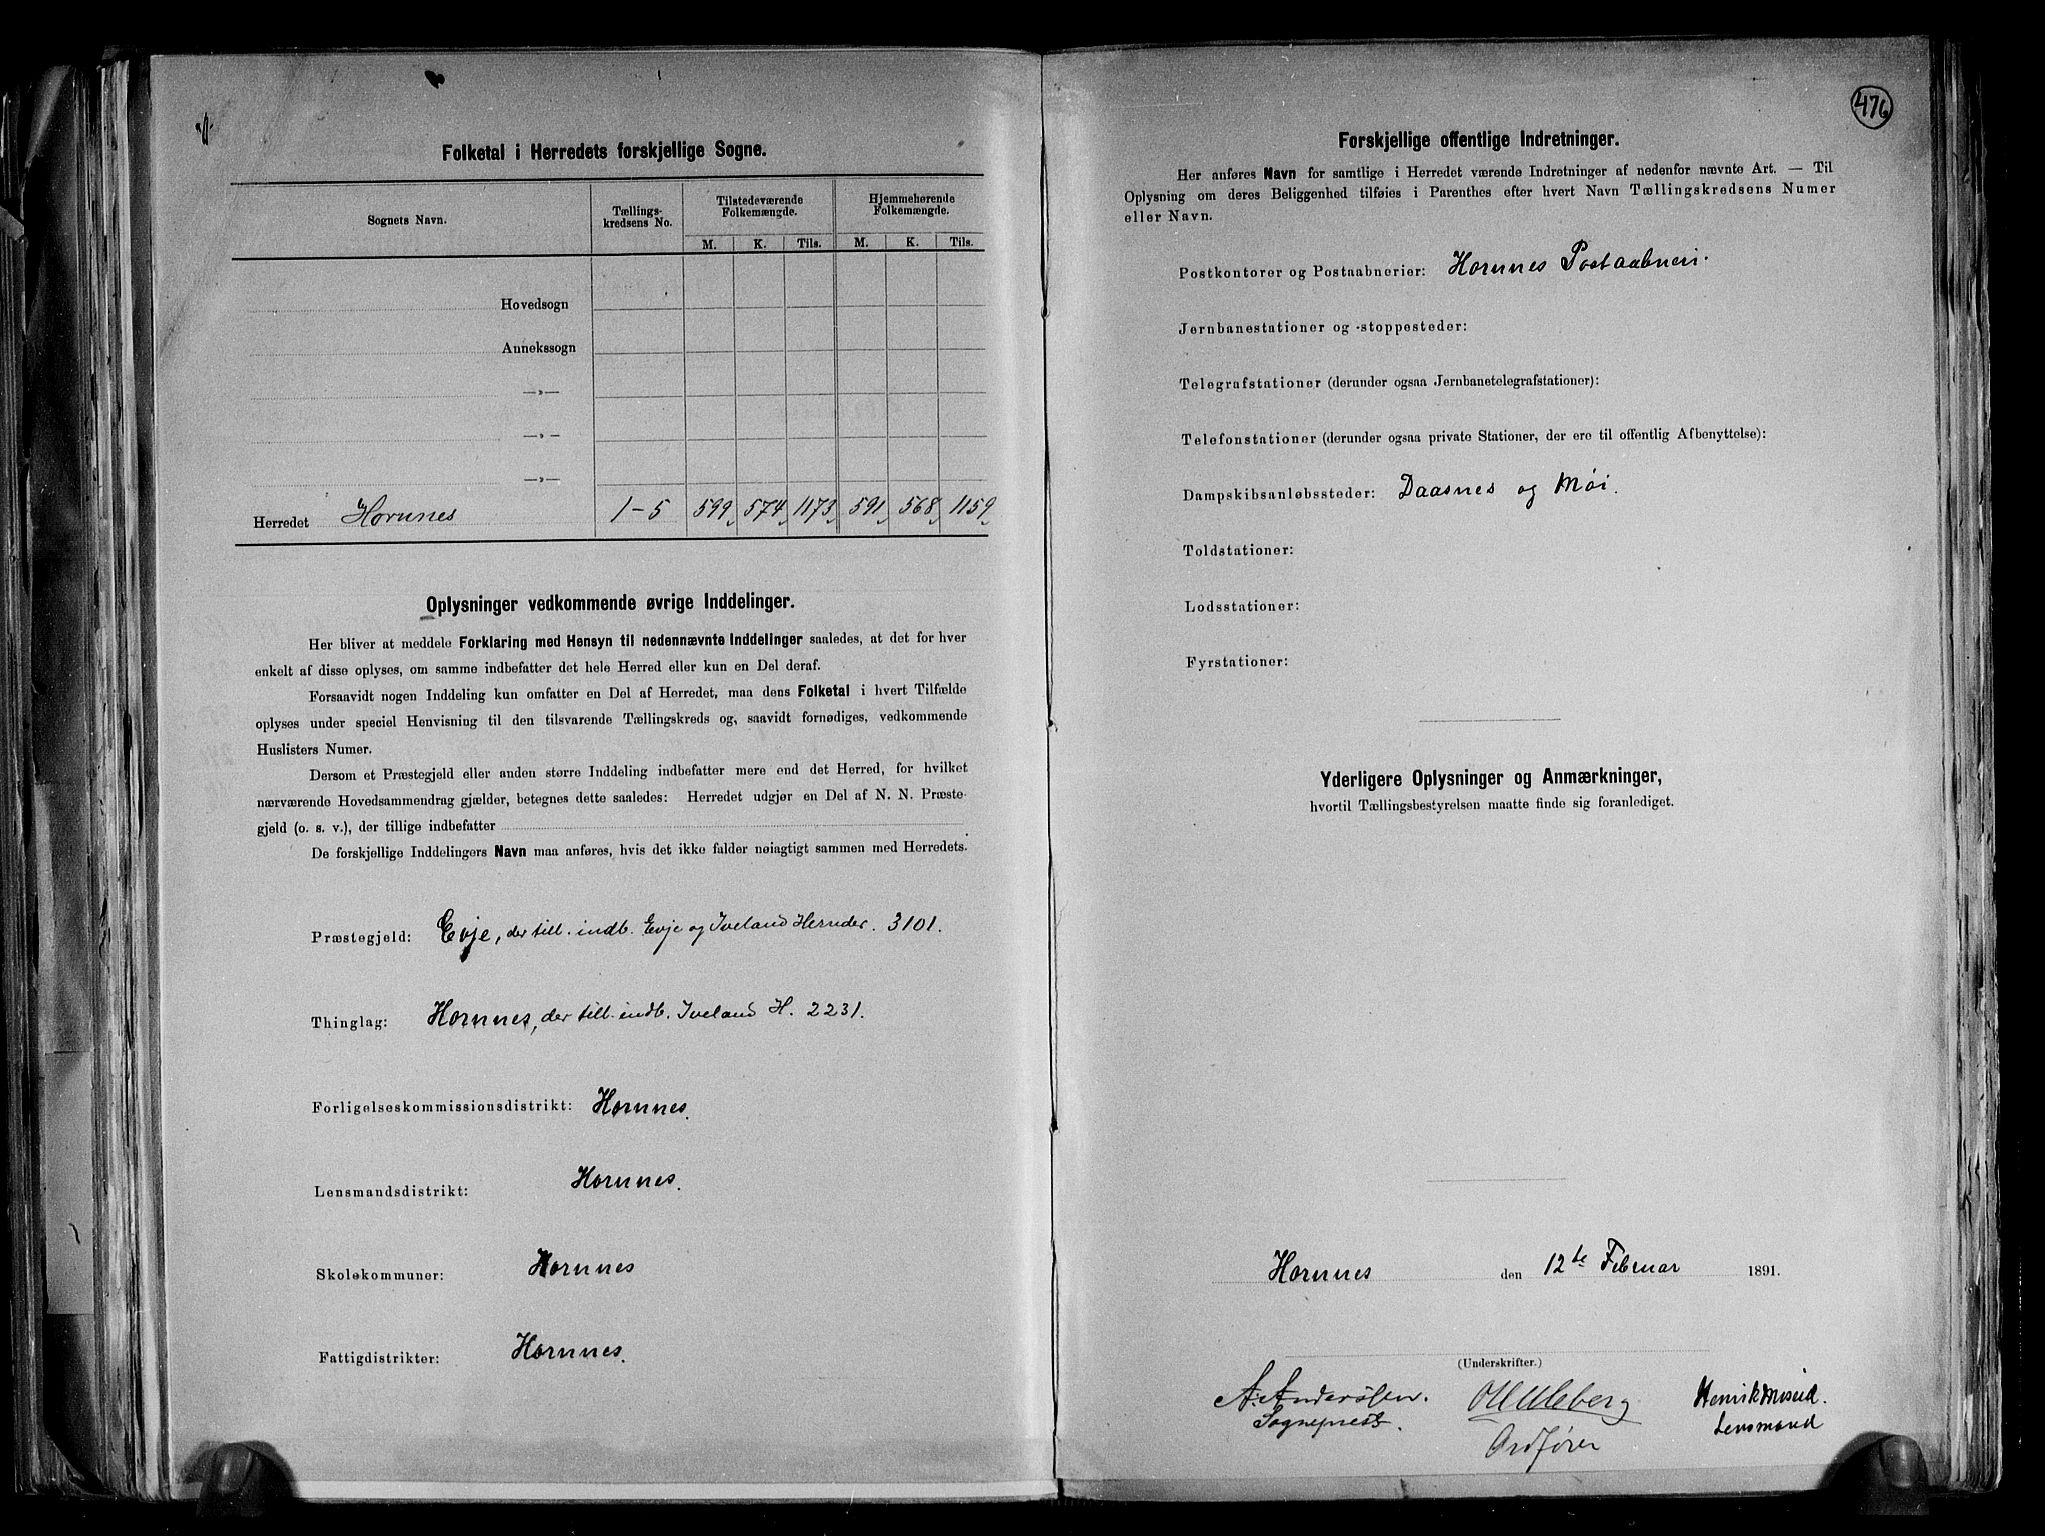 Folketal i Herredets forskjellige Sogne.
Sognets Navn. Tællings-kredsens No. Tilstedeværende Folkemængde. Hjemmehørende Folkemængde.
M. K. Tils. M. K. Tils.
Hovedsogn
Annekssogn
—»—
—»—
—»—
Herredet Hornnes 1-5 599 574 1173 591 568 1159
Oplysninger vedkommende øvrige Inddelinger.
Her bliver at meddele Forklaring med Hensyn til nedennævnte Inddelinger saaledes, at det for hver
enkelt af disse oplyses, om samme indbefatter det hele Herred eller kun en Del deraf.
Forsaavidt nogen Inddeling kun omfatter en Del af Herredet, maa dens Folketal i hvert Tilfælde
oplyses under speciel Henvisning til den tilsvarende Tællingskreds og, saavidt fornødiges, vedkommende
Huslisters Numer.
Dersom et Præstegjeld eller anden større Inddeling indbefatter mere end det Herred, for hvilket
nærværende Hovedsammendrag gjælder, betegnes dette saaledes: Herredet udgjør en Del af N. N. Præste-
gjeld (o. s. v.), der tillige indbefatter
De forskjellige Inddelingers Navn maa anføres, hvis det ikke falder nøiagtigt sammen med Herredets.
Præstegjeld: Evje, der till. indb. Evje og Iveland Herreder. 3101.
Thinglag: Hornnes, der till. indb. Iveland H. 2231.
Forligelseskommissionsdistrikt: Hornnes.
Lensmandsdistrikt: Hornnes.
Skolekommuner: Hornnes
Fattigdistrikter: Hornnes.
476
Forskjellige offentlige Indretninger.
Her anføres Navn for samtlige i Herredet værende Indretninger af nedenfor nævnte Art. — Til
Oplysning om deres Beliggenhed tilføies i Parenthes efter hvert Navn Tællingskredsens Numer
eller Navn.
Postkontorer og Postaabnerier: Hornnes Postaabneri.
Jernbanestationer og -stoppesteder:
Telegrafstationer (derunder ogsaa Jernbanetelegrafstationer):
Telefonstationer (derunder ogsaa private Stationer, der ere til offentlig Afbenyttelse):
Dampskibsanløbssteder: Daasnes og Møi.
Toldstationer:
Lodsstationer:
Fyrstationer:
Yderligere Oplysninger og Anmærkninger,
hvortil Tællingsbestyrelsen maatte finde sig foranlediget.
Hornnes den 12te Februar 1891.
(Underskrifter.)
A. Anderssen. Henrik
Sogneprest. Lensmand
Ordfører